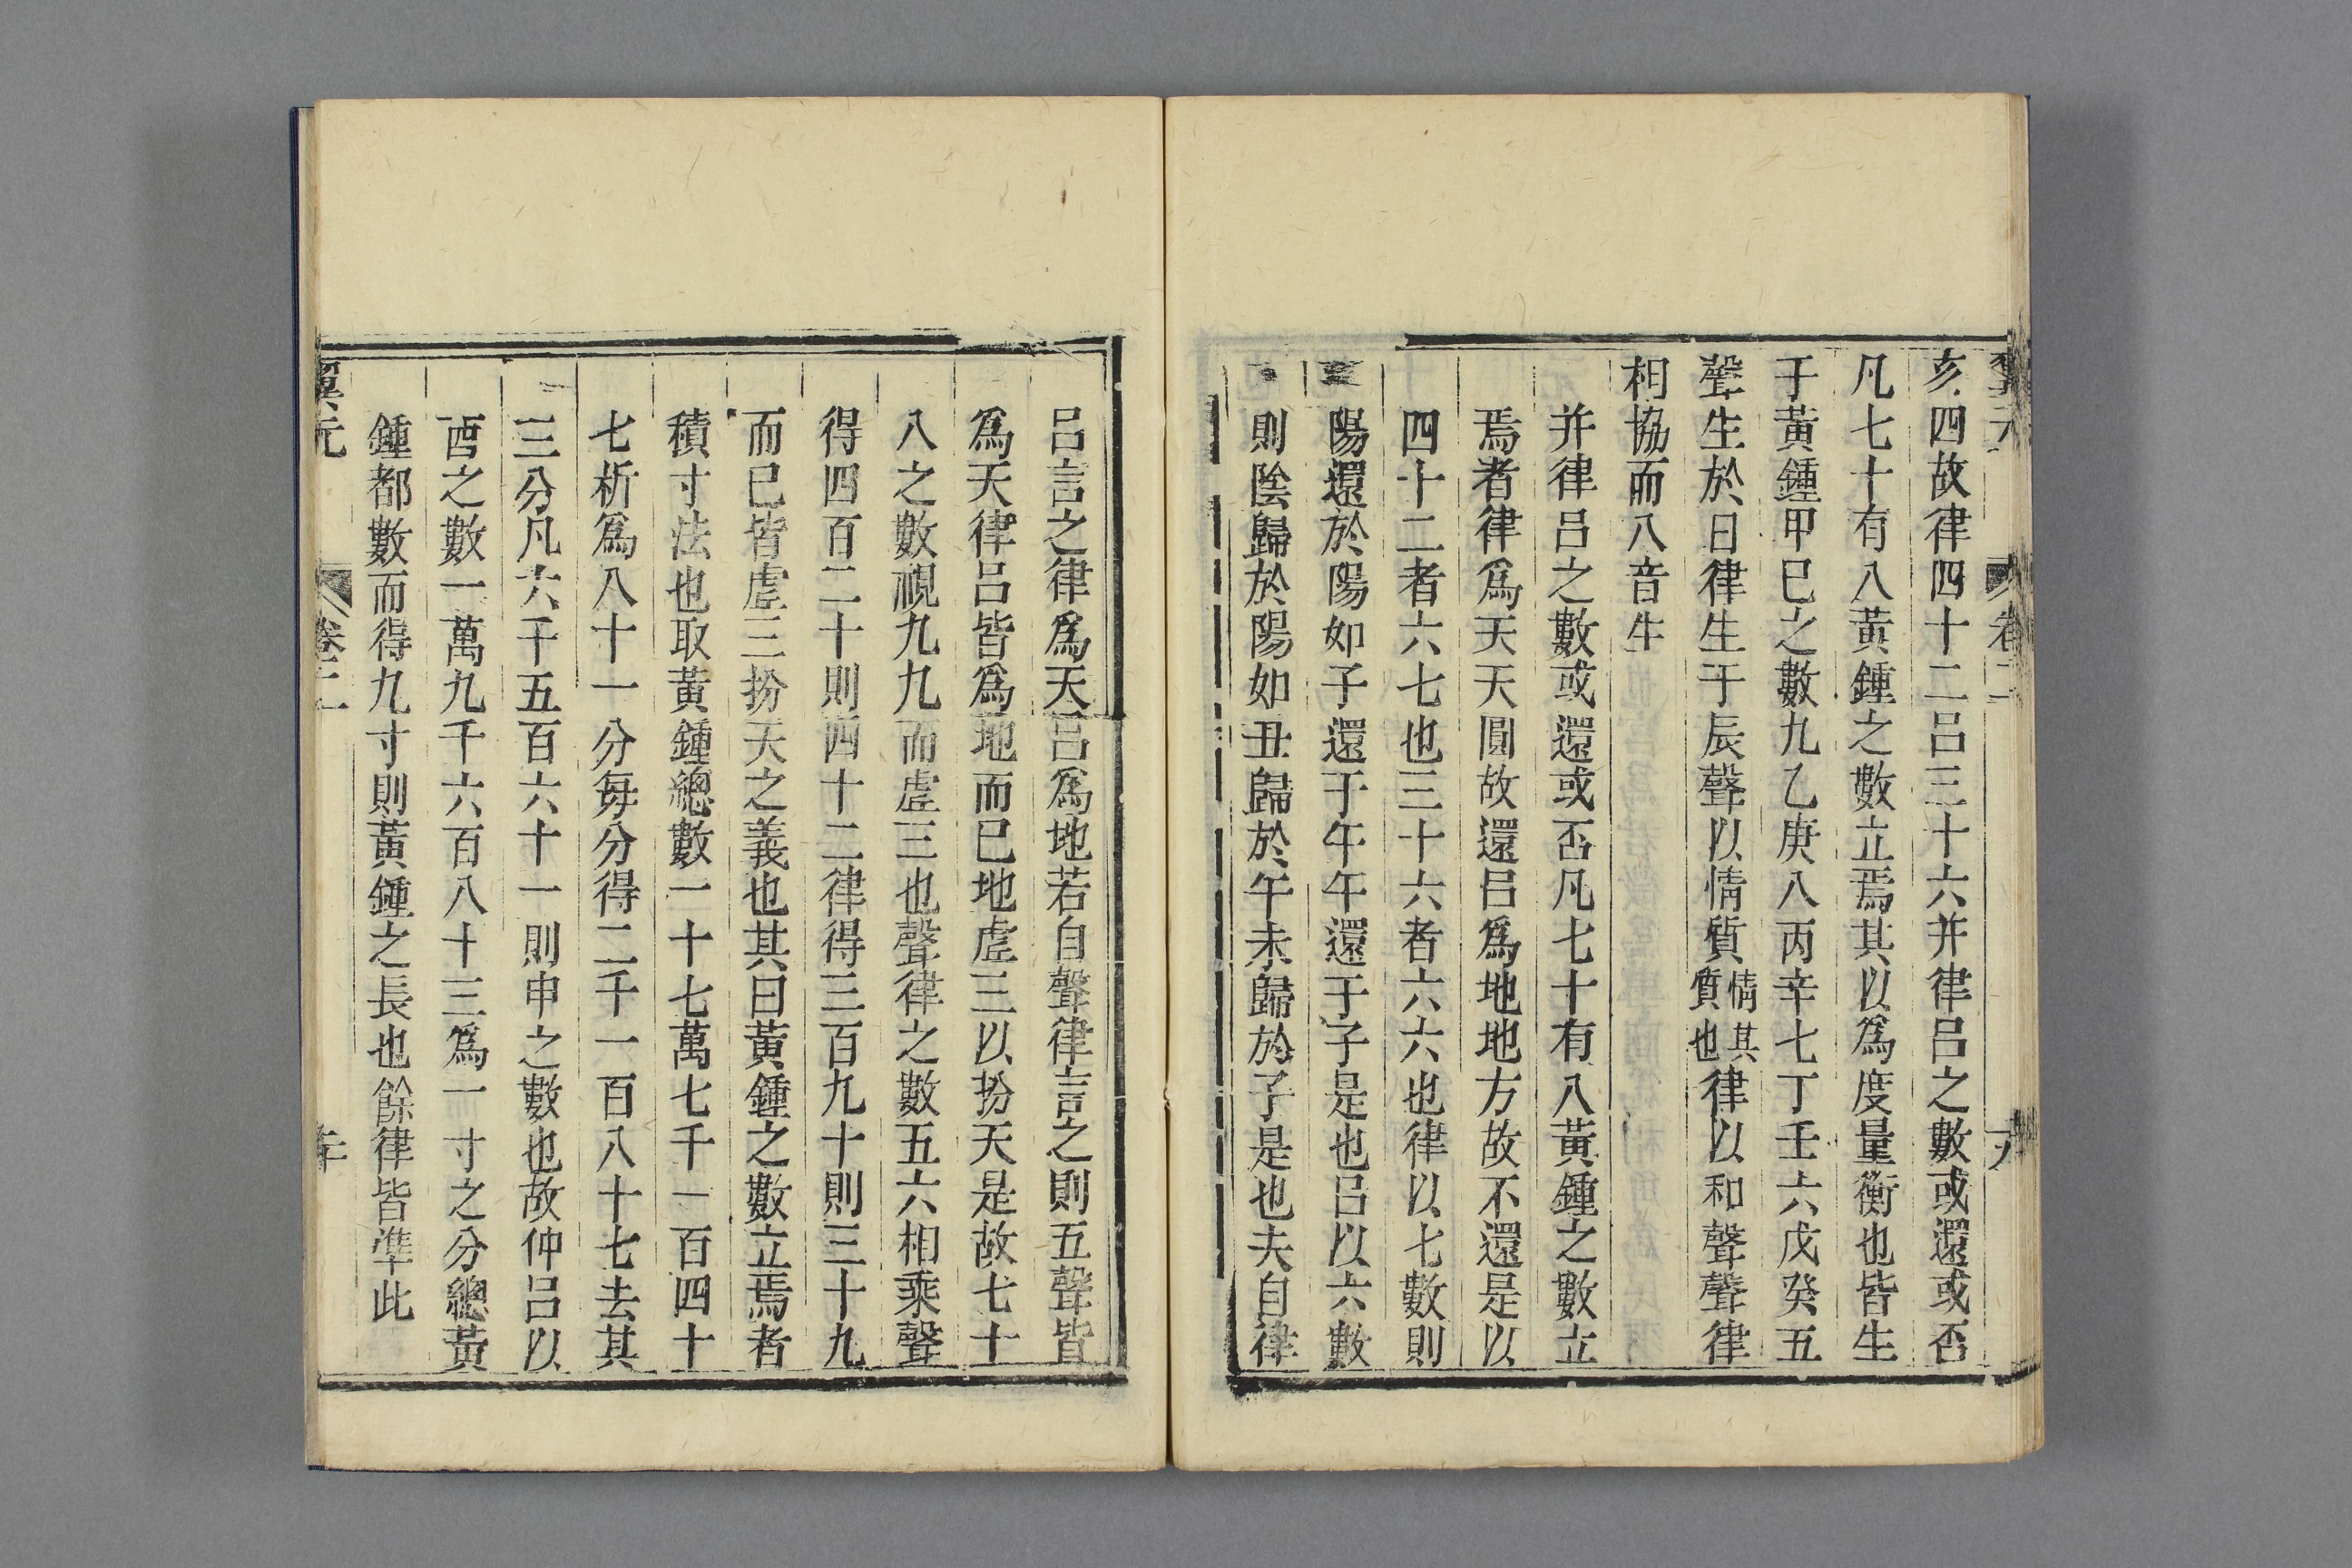 翼元
卷二
亥四故律四十二呂三十六并律呂之數或還或否
凡七十有八黃鍾之數立焉其以為度量衡也皆生
于黃鍾甲巳之數九乙庚八丙辛七丁壬六戊癸五
聲生於日律生于辰聲以情質情其質也律以和聲聲律
相協而八音生
并律呂之數或還或否凡七十有八黃鍾之數立
焉者律為天天圓故還呂為地地方故不還是以
四十二者六七也三十六者六六也律以七數則
陽還於陽如子還于午午還于子是也呂以六數
則陰歸於陽如丑歸於午未歸於子是也夫自律
呂言之律為天呂為地若自聲律言之則五聲皆
為天律呂皆為地而已地虛三以扮天是故七十
八之數視九九而虛三也聲律之數五六相乘聲
得四百二十則四十二律得三百九十則三十九
而已皆虛三扮天之義也其曰黃鍾之數立焉者
積寸法也取黃鍾總數一十七萬七千一百四十
七析為八十一分每分得二千一百八十七去其
三分凡六千五百六十一則申之數也故仲呂以
酉之數一萬九千六百八十三為一寸之分總黃
鍾都數而得九寸則黃鍾之長也餘律皆準此
翼元
卷二